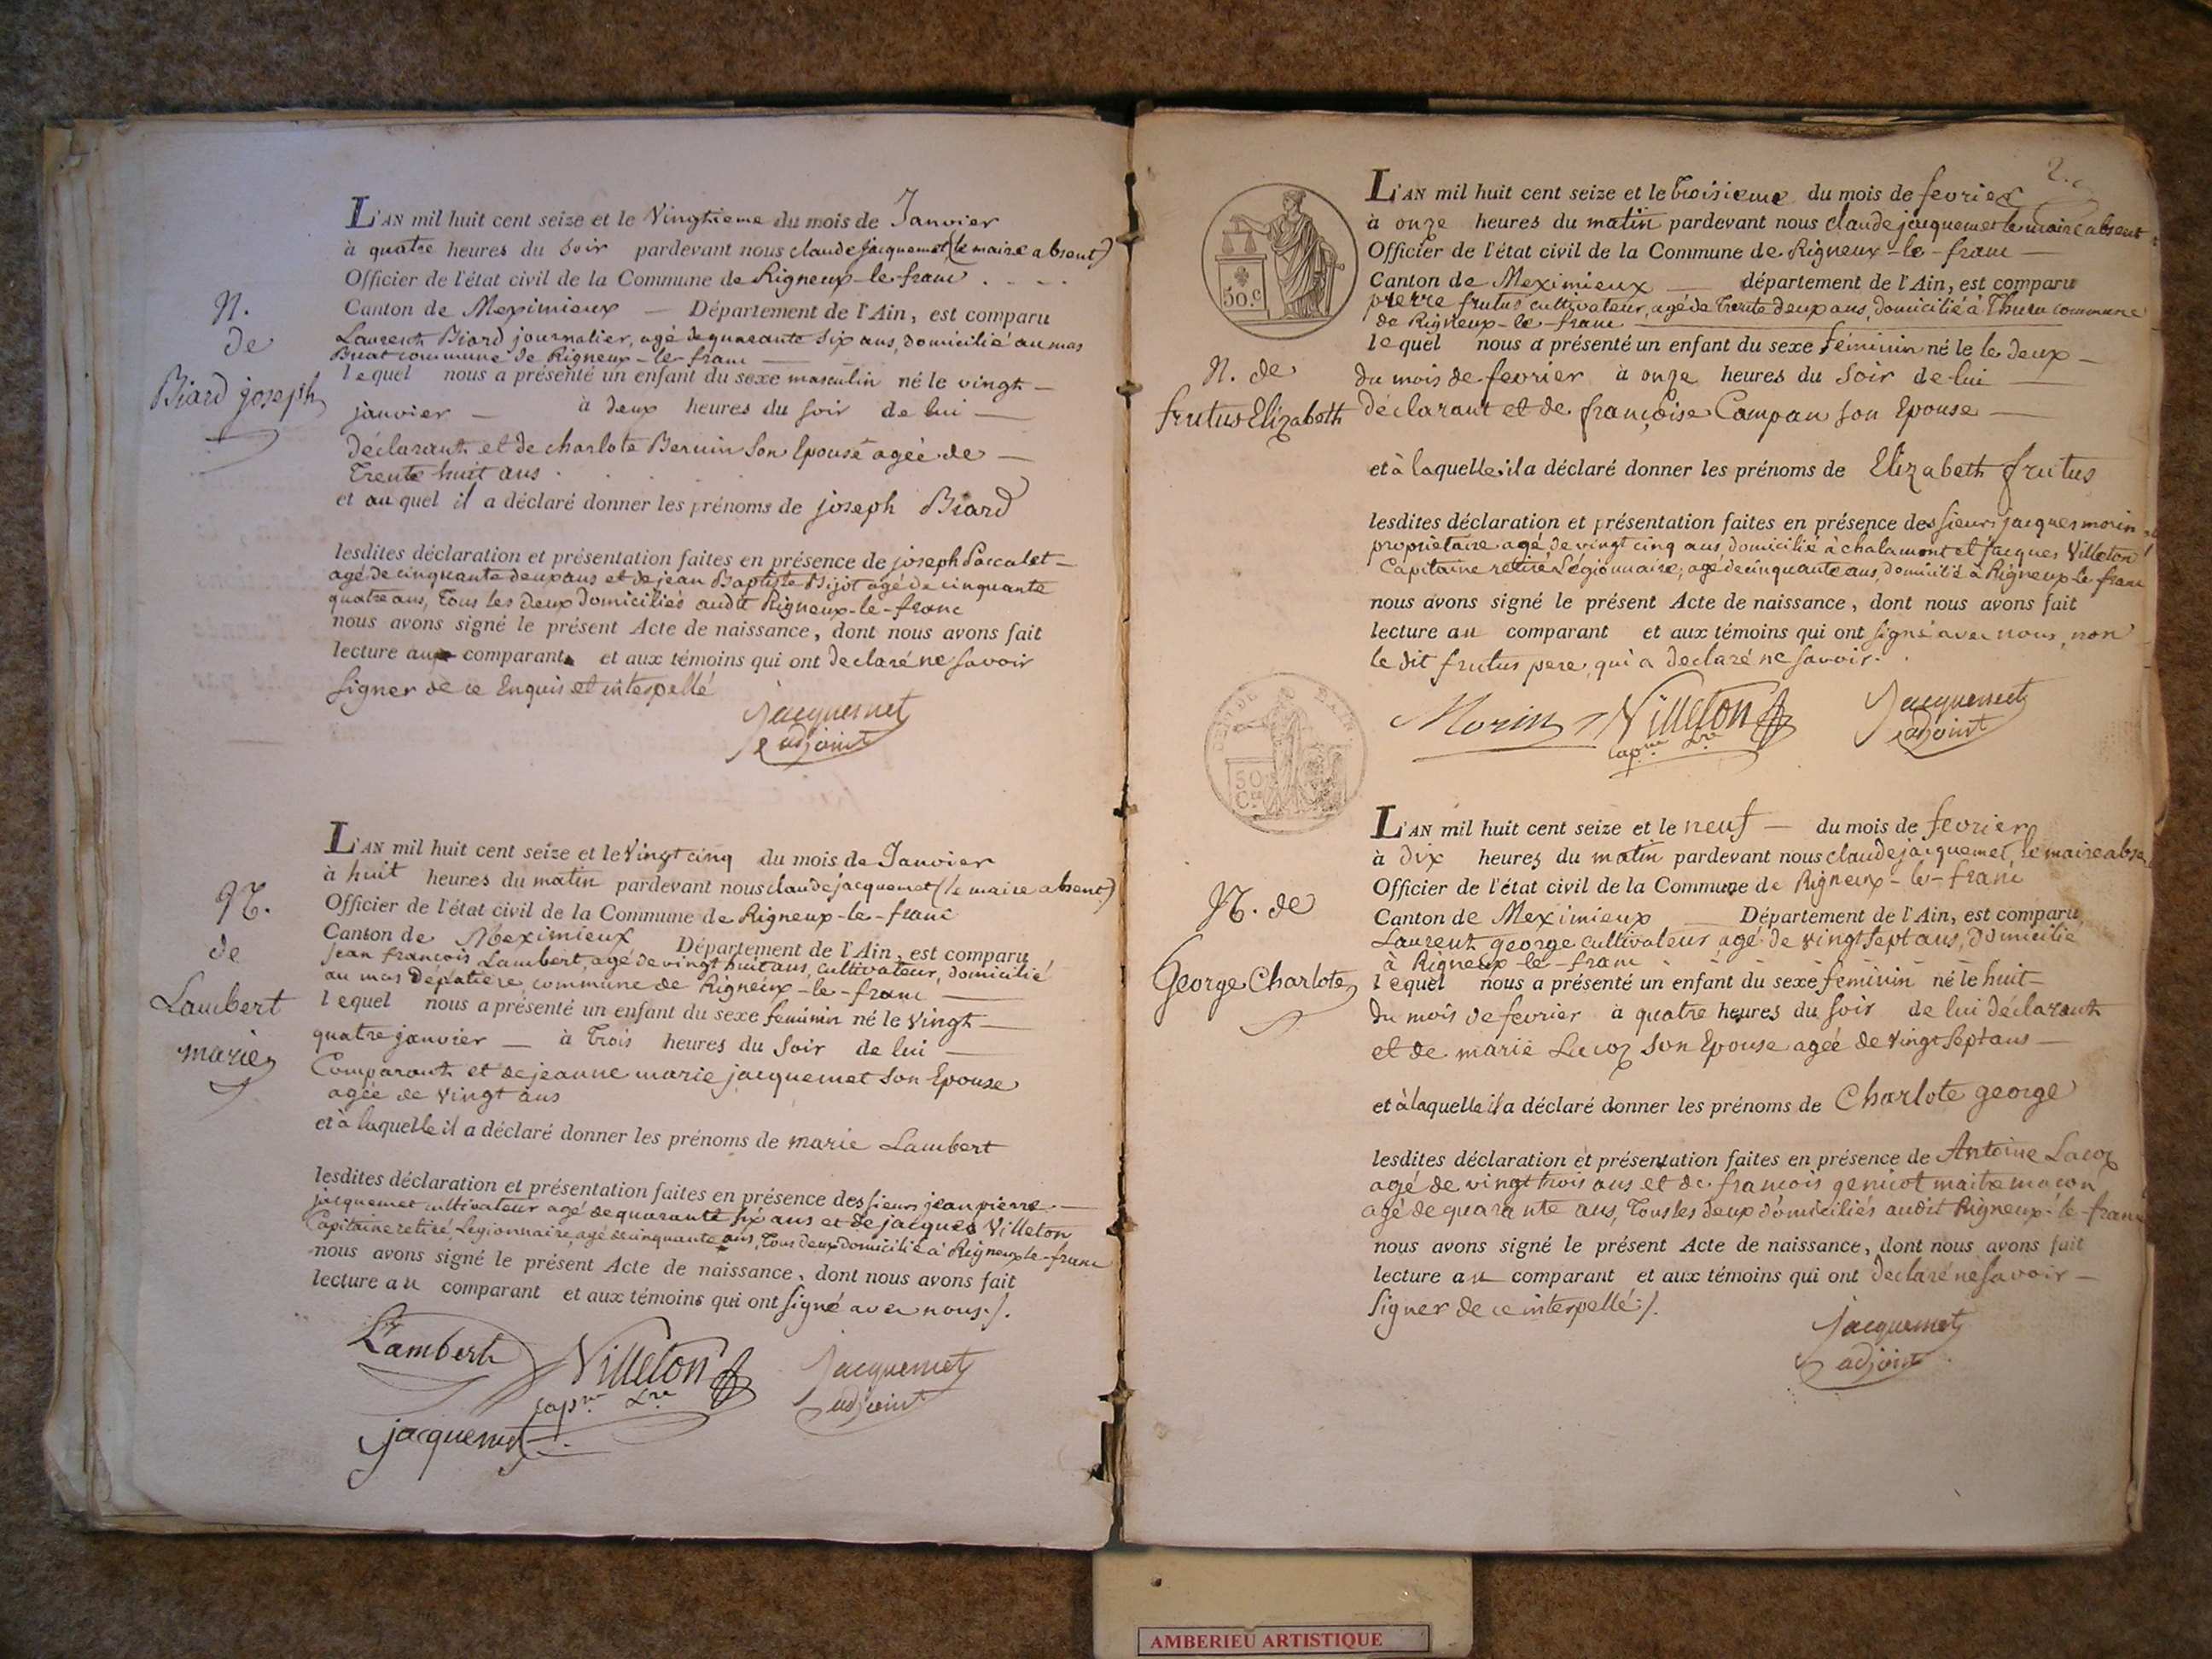 N.
de
Biard joseph
L'AN mil huit cent seize et le Vingtieme du mois de Janvier
à quatre heures du soir pardevant nous claude jacquemet (le maire absent)
Officier de l'état civil de la Commune de Rigneux-le-franc . . . .
Canton de Meximieux — Département de l'Ain, est comparu
Laurent Biard journalier, agé de quarante six ans, domicilié au mas
Bruat commune de Rigneux-le-franc —
lequel nous a présenté un enfant du sexe masculin né le vingt —
janvier — à deux heures du soir de lui —
déclarant et de charlote Beruin son Epouse agée de —
Trente huit ans .
et auquel il a déclaré donner les prénoms de joseph Biard
lesdites déclaration et présentation faites en présence de joseph Paccalet —
agé de cinquante deux ans et de jean Baptiste Bijot agé de cinquante
quatre ans, Tous les deux domiciliés audit Rigneux-le-franc
nous avons signé le présent Acte de naissance, dont nous avons fait
lecture au comparant et aux témoins qui ont declaré ne savoir
signer de ce Enquis et interpellé
jacquemet
adjoint
N.
de
Lambert
marie
L'AN mil huit cent seize et le Vingt cinq du mois de Janvier
à huit heures du matin pardevant nous claude jacquemet (le maire absent)
Officier de l'état civil de la Commune de Rigneux-le-franc
Canton de Meximieux Département de l'Ain, est comparu
Jean francois Lambert, agé de vingt huit ans, cultivateur, domicilié
au mas depatiere, commune de Rigneux-le-franc —
lequel nous a présenté un enfant du sexe feminin né le Vingt —
quatre janvier — à Trois heures du soir de lui —
Comparant et de jeanne marie jacquemet son Epouse
agée de vingt ans
et à laquelle il a déclaré donner les prénoms de marie Lambert
lesdites déclaration et présentation faites en présence des sieurs jean pierre —
jacquemet cultivateur agé de quarante six ans et de jacques Villeton
Capitaine retiré Legionnaire, agé de cinquante ans, Tous deux domicilié à Rigneux le-franc
nous avons signé le présent Acte de naissance, dont nous avons fait
lecture au comparant et aux témoins qui ont signé avec nous ./.
Lambert Villeton jacquemet
capne Lre adjoint
jacquemet
2.
50.c
N. de
frutus Elizabeth
L'AN mil huit cent seize et le troisieme du mois de fevrier
à onze heures du matin pardevant nous claude jacquemet le maire absent
Officier de l'état civil de la Commune de Rigneux-le-franc —
Canton de Meximieux — département de l'Ain, est comparu
pierre frutus cultivateur, agé de trente deux ans, domicilié à Thuru commune
de Rigneux-le-franc —
lequel nous a présenté un enfant du sexe féminin né le le deux —
du mois de fevrier à onze heures du soir de lui —
déclarant et de françoise Campan son Epouse —
et à laquelle il a déclaré donner les prénoms de Elizabeth frutus
lesdites déclaration et présentation faites en présence des sieurs jacques morin
proprietaire agé de vingt cinq ans, domicilié à chalamont et jacques Villeton
Capitaine retiré Légionnaire, agé de cinquante ans, domicilié à Rigneux le franc
nous avons signé le présent Acte de naissance, dont nous avons fait
lecture au comparant et aux témoins qui ont signé avec nous, non
le dit frutus pere, qui a declaré ne savoir.
Morin Villeton jacquemet
capne Lre adjoint
50
Ces
N. de
George Charlote
L'AN mil huit cent seize et le neuf — du mois de fevrier
à dix heures du matin pardevant nous claude jacquemet, le maire abse
Officier de l'état civil de la Commune de Rigneux-le-franc
Canton de Meximieux — Département de l'Ain, est comparu
Laurent george cultivateur agé de vingt sept ans, domicilié
à Rigneux-le-franc
lequel nous a présenté un enfant du sexe feminin né le huit —
du mois de fevrier à quatre heures du soir de lui déclarant
et de marie Lacoz son Epouse agée de vingt sept ans —
et à laquelle il a déclaré donner les prénoms de Charlote george
lesdites déclaration et présentation faites en présence de Antoine Lacoz
agé de vingt trois ans et de francois genicot maitre macon
agé de quarante ans, Tous les deux domiciliés audit Rigneux-le-franc
nous avons signé le présent Acte de naissance, dont nous avons fait
lecture au comparant et aux témoins qui ont declaré ne savoir —
signer de ce interpellé ./.
jacquemet
adjoint
AMBERIEU ARTISTIQUE